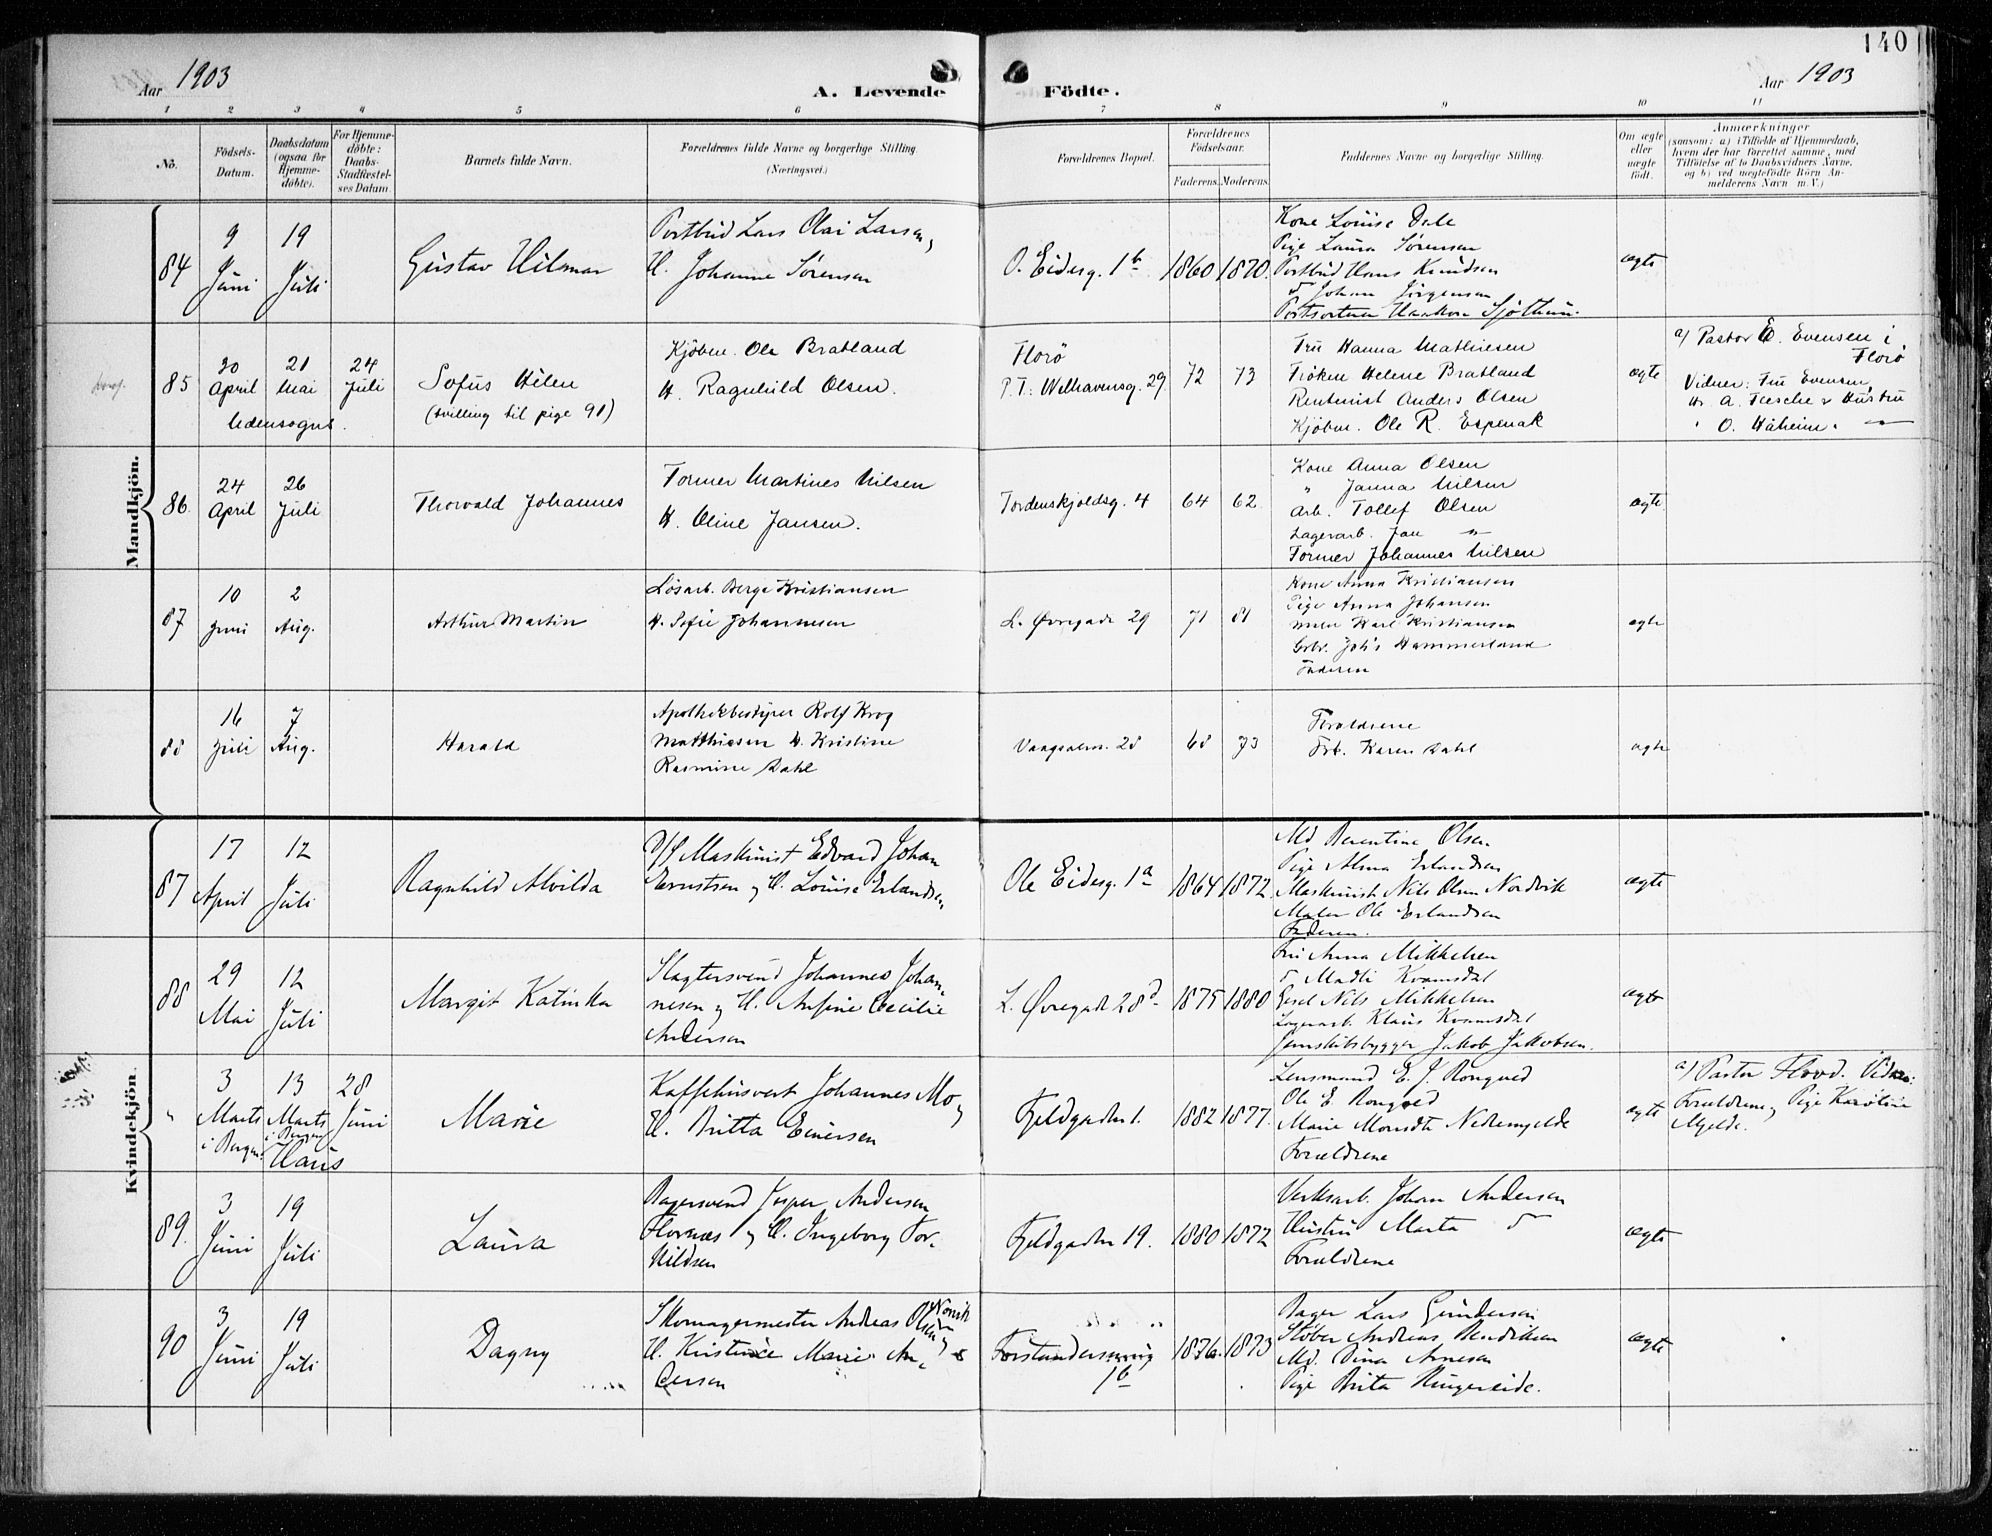 140
Aar 1903
A. Levende Födte.
Aar 1903
1 2 3 4 5 6 7 8 9 10 11
Nö.
Födsels-Datum.
Daabsdatum (ogsaa for Hjemme-döbte).
For Hjemme-döbte: Daabs-Stadfæstel-ses Datum.
Barnets fulde Navn.
Forældrenes fulde Navne og borgerlige Stilling.
(Næringsvei.)
Forældrenes Bopæl.
Forældrenes Födselsaar.
Faderens. Moderens.
Faddernes Navne og borgerlige Stilling.
Om ægte eller uægte födt.
Anmærkninger
(saasom: a) i Tilfælde af Hjemmedaab,
hvem der har forrettet samme, med
Tilföielse af to Daabsvidners Navne,
og b) ved uegtefödte Börn An-
melderens Navn m.V.)
Mandkjön.
84
9 Juni
19 Juli
Gustav Hilmar
Postbud Lars Olai Larsen,
H. Johanne Sørensen
O. Eidesg. 1b
1860 1870.
Kone Louise Dale
Pige Laura Sørensen
Postbud Hans Knudsen
Johan Jørgensen
Postsorterer Haakon Sjøthun.
ægte
85
30 April
21 Mai
24 Juli
Udensogns.
Sofus Hilen
(tvilling til pige 91)
Kjøbm. Ole Bratland
H. Ragnhild Olsen.
Florö
P.T.: Welhavensg. 29
72 73
Fru Hanna Mathiesen
Frøken Helene Bratland
Rentenist Anders Olsen
Kjöbm. Ole R. Espenak
ægte
a) Pastor E. Evensen i
Florö
Vidner: Fru Evensen,
Hr. A. Flesche & Hustru
" O. Håheim. "
86.
24 April
26 Juli
Thorvald Johannes
Former Martines Nilsen
H. Oline Jansen.
Tordenskjoldsg. 4
64 62.
Kone Anna Olsen
" Janna Nilsen
Arb. Tollef Olsen
Lagerarb. Jan "
Former Johannes Nilsen
ægte
87
10 Juni
2 Aug.
Arthur Martin
Løsarb. Berge Kristiansen
H. Sofie Johannesen
L. Øvregade 29
71 81
Kone Anna Kristiansen
Pige Anna Johansen
Karl Kristiansen
Joh's Hammerland
Faderen
ægte
88
16 Juli
7 Aug.
Harald
Apothekbestyrer Rolf Krog
Matthiesen H. Kristine
Rasmine Dahl
Vaagsalm. 28
68 73
Forældrene
Frk. Karen Dahl
ægte
Kvindekjön.
87
17 April
12 Juli
Ragnhild Alvilda
D/S Maskinist Edvard Johan
Ernstsen og H. Louise Erlandsen,
Ole Eidesg. 1a
1864 1872.
Md Berentine Olsen
Pige Alma Erlandsen
Maskinist Nils Olsen Nordvik
Maler Ole Erlandsen
Faderen.
ægte
88
29 Mai
12 Juli
Margit Katinka
Slagtersvend Johannes Johan-
nesen og H. Ansine Cecilie
Andersen
L. Øvregade 28d
1875 1880
Fru Anna Mikkelsen
Madli Kvamsdal
Nils Mikkelsen
Lagerarb. Klaus Kvamsdal
Jernskibsbygger Jakob Jakobsen.
ægte
"
3 Marts i Bergen
13 Marts i Bergen
28 Juni
Haus
Marie
Kaffehusvert Johannes Mo,
H. Britta Einersen
Fjeldgaden 1.
1882 1877.
Lensmand E. J. Rongved
Ole E. Rongved
Marie Nedremjelde
Forældrene
ægte
a) Pastor Flood. Vidner:
Forældrene, Pige Karoline
Mjelde.
89.
3 Juni
19 Juli
Laura
Bagersvend Jesper Andersen
Flornæs og H. Ingeborg Tor-
kildsen
Fjeldgaden 19.
1880 1872
Verksarb. Johan Andersen
Hustru Marta
Forældrene
ægte
90
3 Juni
19 Juli
Dagny
Skomagermester Andreas Olsen Norvik
H. Kristence Marie An-
dersen
Forstandersmug
1b
1876. 1873
Bager Lars Gundersen
Støber Andreas Bendiksen
Md. Dina Arnesen
Pige Brita Ringereide.
ægte